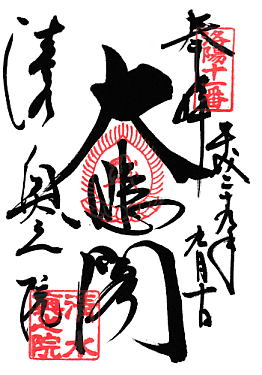 奉拝
洛陽十一番
平成二十九年九月十日
大悲閣
清水
奥之院
清水
奥之院